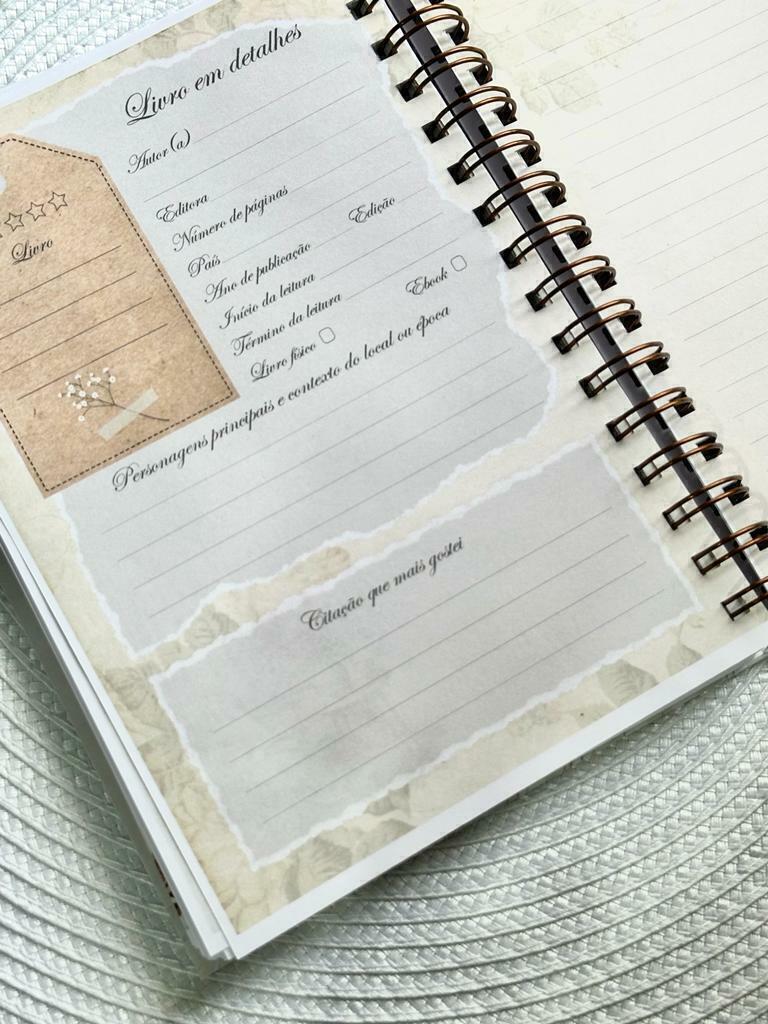 Livro em detalhes
Autor (a)
Editora
Número de páginas
País
Edição
Ano de publicação
Início da leitura
Término da leitura
Livro físico
Ebook
Personagens principais e contexto do local ou época
Livro
Citação que mais gostei